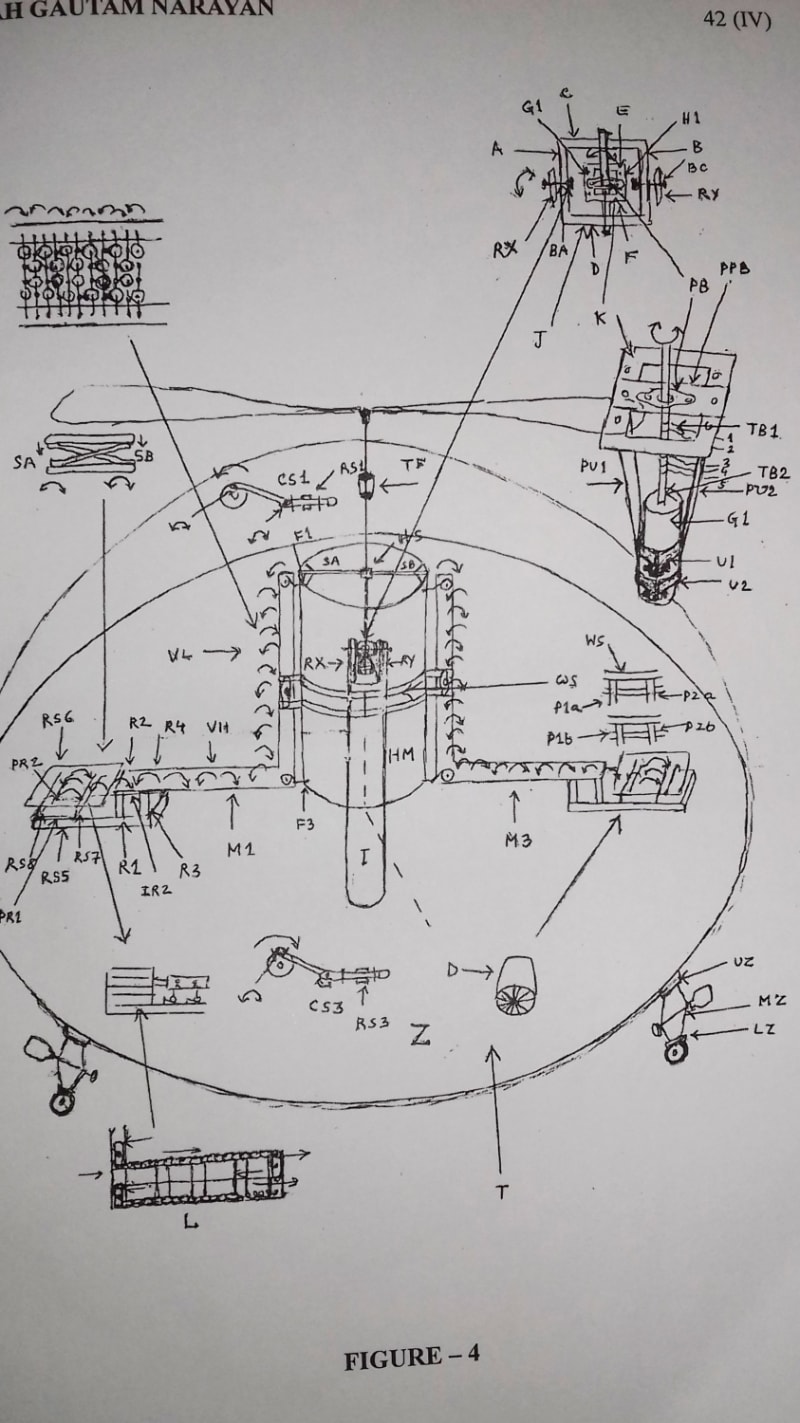 AH GAUTAM NARAYAN
42 (IV)
G1
C
E
H1
A
B
BC
RX
BA
D
F
RY
J
K
PB
PPB
SA
SB
CS1
RS1
TF
PU1
1
2
3
4
5
6
TB1
TB2
PU2
G1
U1
U2
F1
SA
SB
VL
RX
RY
WS
WS
P1a
P2a
P1b
P2b
RS6
R2
R4
VH
PR2
HM
RS8
RS5
RS7
R1
IR2
R3
M1
F3
I
M3
PR1
D
CS3
RS3
Z
UZ
MZ
LZ
T
L
FIGURE – 4